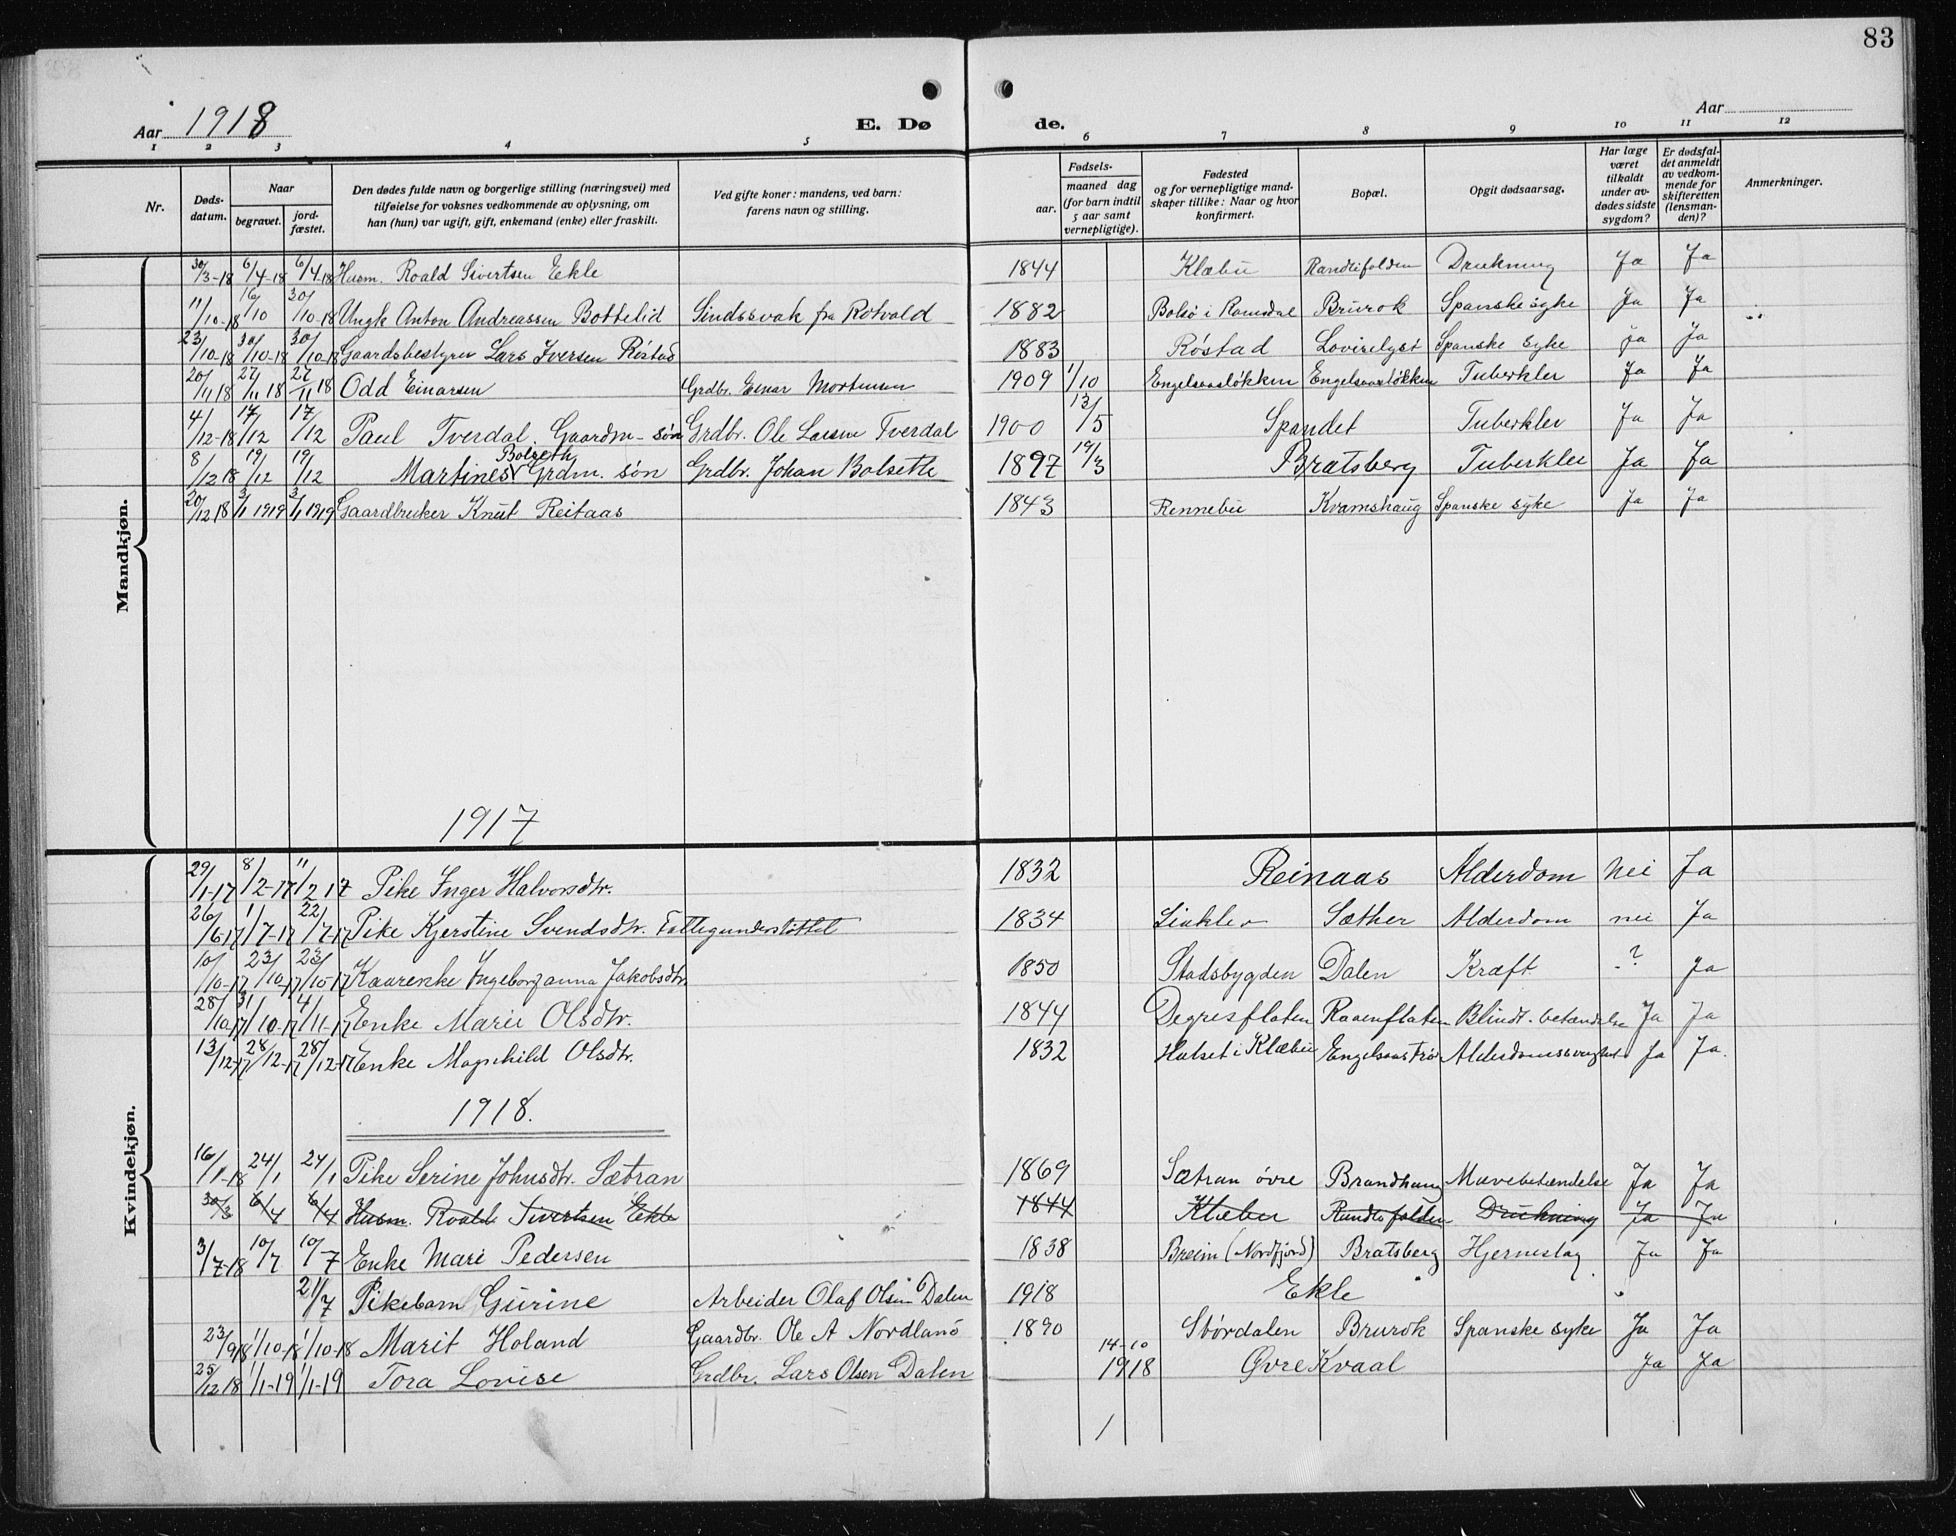 83
Aar 1918
E. Dø
de.
Aar
1 2 3 4 5 6 7 8 9 10 11 12
Nr.
Døds-
datum.
Naar
begravet.
jord-
fæstet.
Den dødes fulde navn og borgerlige stilling (næringsvei) med
tilføielse for voksnes vedkommende av oplysning, om
han (hun) var ugift, gift, enkemand (enke) eller fraskilt.
Ved gifte koner: mandens, ved barn:
farens navn og stilling.
Fødsels-
aar.
maaned dag
(for barn indtil
5 aar samt
vernepligtige).
Fødested
og for vernepligtige mand-
skaper tillike: Naar og hvor
konfirmert.
Bopæl.
Opgit dødsaarsag.
Har læge
været
tilkaldt
under av-
dødes sidste
sygdom?
Er dødsfal-
det anmeldt
av vedkom-
mende for
skifteretten
(lensman-
den)?
Anmerkninger.
Mandkjøn.
30/3-18 6/4-18 6/4-18 Husm. Roald Sivertsen Ekle 1844 Klæbu Randlifolden Drukning Ja Ja
11/10-18 16/10 30/10-18 Ungk Anton Andreassen Bottelid Sindssvak fra Rotvold 1882 Bolsø i Romsdal Brurok Spanske syke Ja Ja
23/10-18 30/10-18 30/10-18 Gaardsbestyrer Lars Iversen Røstad 1883 Røstad Lovirelyst Spanske syke Ja Ja
20/11 18 27/11 18 27/11 18 Odd Einarsen Grdbr. Einar Mortensen 1909 1/10 Engelsaasløkken Engelsaasløkken Tuberkler Ja Ja
4/12-18 17/12 17/12 Paul Tverdal. Gaardm-søn Grdbr. Ole Larsen Tverdal 1900 13/5 Spandet Tuberkler Ja Ja
Bolseth
8/12 18 19/12 19/12 Martines Grdm. søn Grdbr. Johan Bolseth 1897 19/3 Bratsberg Tuberkler Ja Ja
20/12 18 3/1 1919 3/1 1919 Gaardbruker Knut Reitaas 1843 Rennebu Kvamshaug Spanske syke Ja Ja
1917
Kvindekjøn.
29/1-17 8/2-17 11/2 17 Pike Inger Halvorsdtr. 1832 Reinaas Alderdom Nei Ja
26/6-17 1/7-17 22/7-17 Pike Kjerstine Svendsdtr. Fattigunderstøttet 1834 Sæther Alderdom nei Ja
10/10-17 23/10-17 23/10-17 Kaarenke Ingeborganna Jakobsdtr. 1850 Stadsbygden Dalen Kræft ? Ja
28/10-17 31/10-17 4/11-17 Enke Marie Olsdtr. 1844 Degresflaten Raaenflaten Blindt.betændelse Ja Ja
13/12-17 28/12-17 28/12-17 Enke Magnhild Olsdtr. 1832 Hulset i Klæbu Engelsaas Trø Alderdomssvaghet Ja Ja.
1918.
16/1-18 24/1 24/1 Pike Serine Johnsdtr. Sætran 1869 Sætran øvre Brandhaug Mavebetændelse Ja Ja
30/3 6/4 6/4 Husm. Roald Sivertsen Ekle 1844 Klæbu Randlifolden Drukning Ja Ja
3/7-18 10/7 10/7 Enke Mari Pedersen 1838 Breim (Nordfjord) Bratsberg Hjerneslag Ja Ja
21/7 Pikebarn Gurine Arbeider Olaf Olsen Dalen 1918 Ekle
23/9 18 1/10-18 1/10-18 Marit Holand Gaardbr. Ole A Nordland 1890 Størdalen Brurok Spanske syke Ja Ja
25/12 18 1/1-19 1/1-19 Tora Lovise Grdbr. Lars Olsen Dalen 14-10 1918 Øvre Kvaal Ja Ja
1